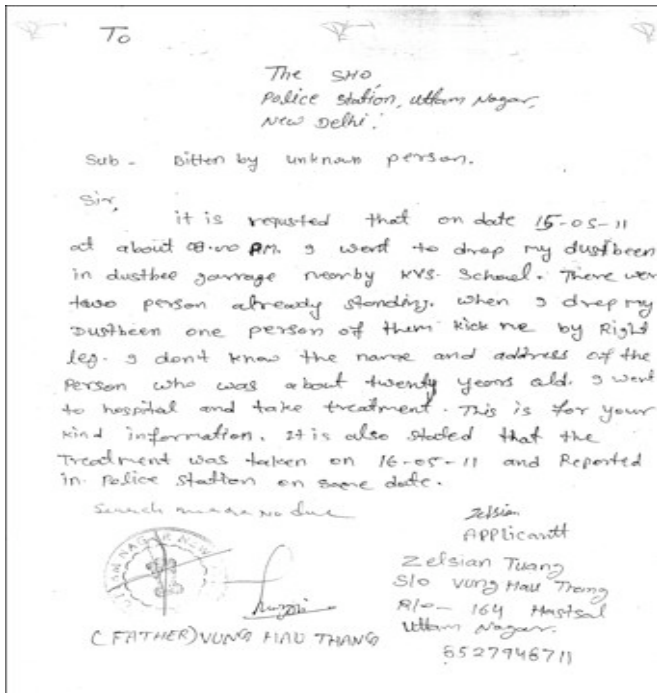 To
The SHO,
Police Station, Uttam Nagar,
New Delhi.
Sub - Bitten by unknown person.
Sir,
it is requsted that on date 15-05-11
at about 08.00 PM. I went to drop my dustbeen
in dustbee garrage nearby KVS. School. There wer
two person already standing. when I drop my
Dustbeen one person of them kick me by Right
leg. I don't know the name and address of the
Person who was about twenty years old. I went
to hospital and take treatment. This is for your
kind information. It is also stated that the
Treatment was taken on 16-05-11 and Reported
in Police Station on same date.
Zelsian
APPlicantt
Zelsian Tuang
S/o Vung Hau Thang
R/o - 164 Hastsal
Uttam Nagar.
6527946711
UTTAM NAGAR NEW
(FATHER) VUNG HAU THANG